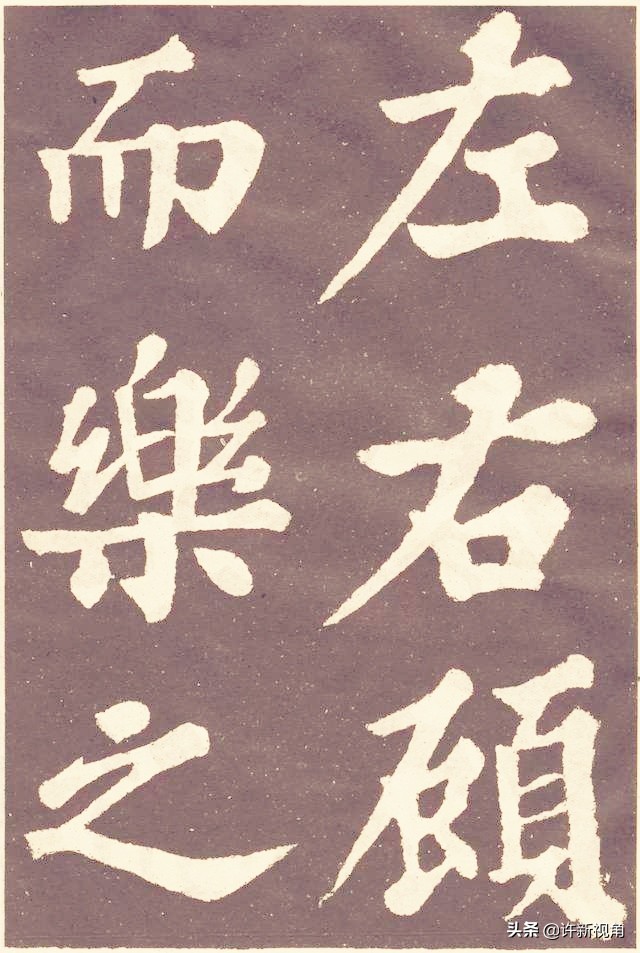 左右顧
而樂之
头条 @许新视角